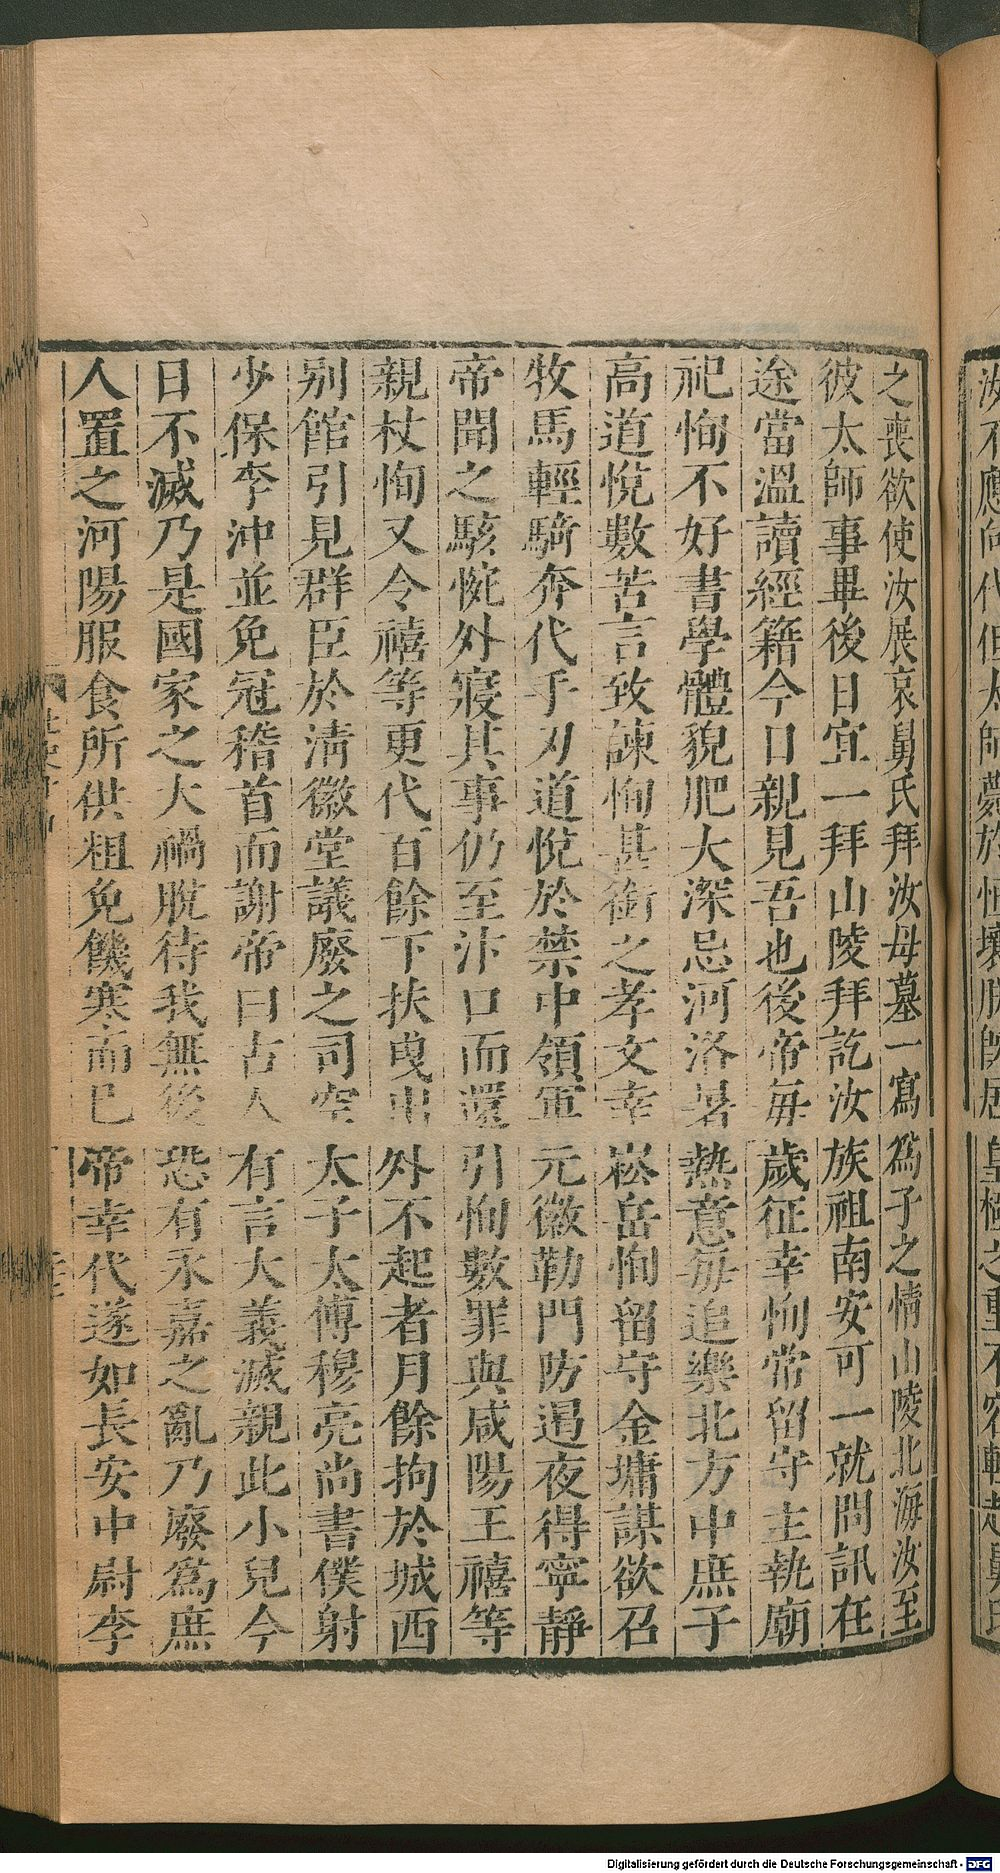 汝不應向代但太師薨於恒壤朕旣居皇極之重不容輕赴舅氏
之喪欲使汝展哀舅氏拜汝母墓一寫爲子之情山陵北海汝至
彼太師事畢後日宜一拜山陵拜訖汝族祖南安可一就問訊在
途當溫讀經籍今日親見吾也後帝每歲征幸恂常留守主執廟
祀恂不好書學體貌肥大深忌河洛暑熱意每追樂北方中庶子
高道悅數苦言致諫恂甚銜之孝文幸崧岳恂留守金墉謀欲召
牧馬輕騎奔代手刃道悅於禁中領軍元徽勒門防遏夜得寧靜
帝聞之駭惋外寢其事仍至汴口而還引恂數罪與咸陽王禧等
親杖恂又令禧等更代百餘下扶曳出外不起者月餘拘於城西
别館引見群臣於淸徽堂議廢之司空太子太傅穆亮尚書僕射
少保李沖並免冠稽首而謝帝曰古人有言大義滅親此小兒今
日不滅乃是國家之大禍脫待我無後恐有永嘉之亂乃廢爲庶
人置之河陽服食所供粗免饑寒而已帝幸代遂如長安中尉李
Digitalisierung gefördert durch die Deutsche Forschungsgemeinschaft - DFG